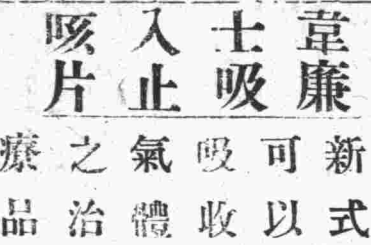 韋廉
士吸
入止
咳片
新式
可以
吸收
氣體
之治
療品